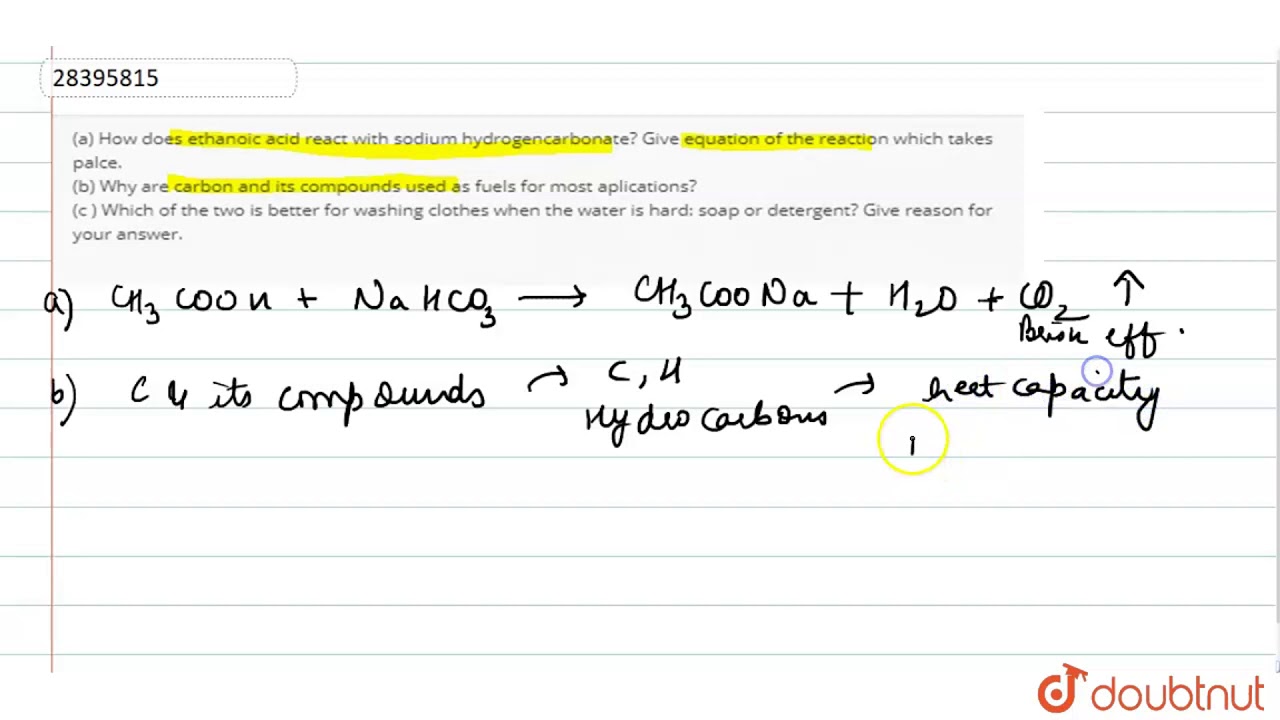 28395815
(a) How does ethanoic acid react with sodium hydrogencarbonate? Give equation of the reaction which takes
palce.
(b) Why are carbon and its compounds used as fuels for most aplications?
(c ) Which of the two is better for washing clothes when the water is hard: soap or detergent? Give reason for
your answer.
a) CH3COOH + NaHCO3 → CH3COONa + H2O + CO2 ↑
Brisk eff.
b) C & its compounds → C, H → heat capacity
Hydrocarbons
doubtnut